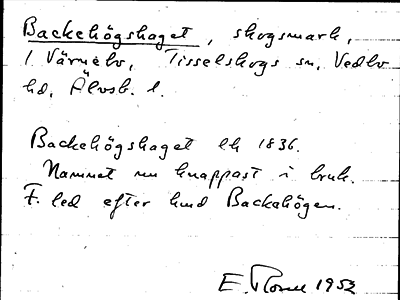 Backehögshaget, skogsmark,
i Värnebo, Tisselskogs sn, Vedbo
hd, Älvsb. l.
Backehögshaget lh 1836.
Namnet nu knappast i bruk.
F. led efter hmd Backahögen.
E. 1952